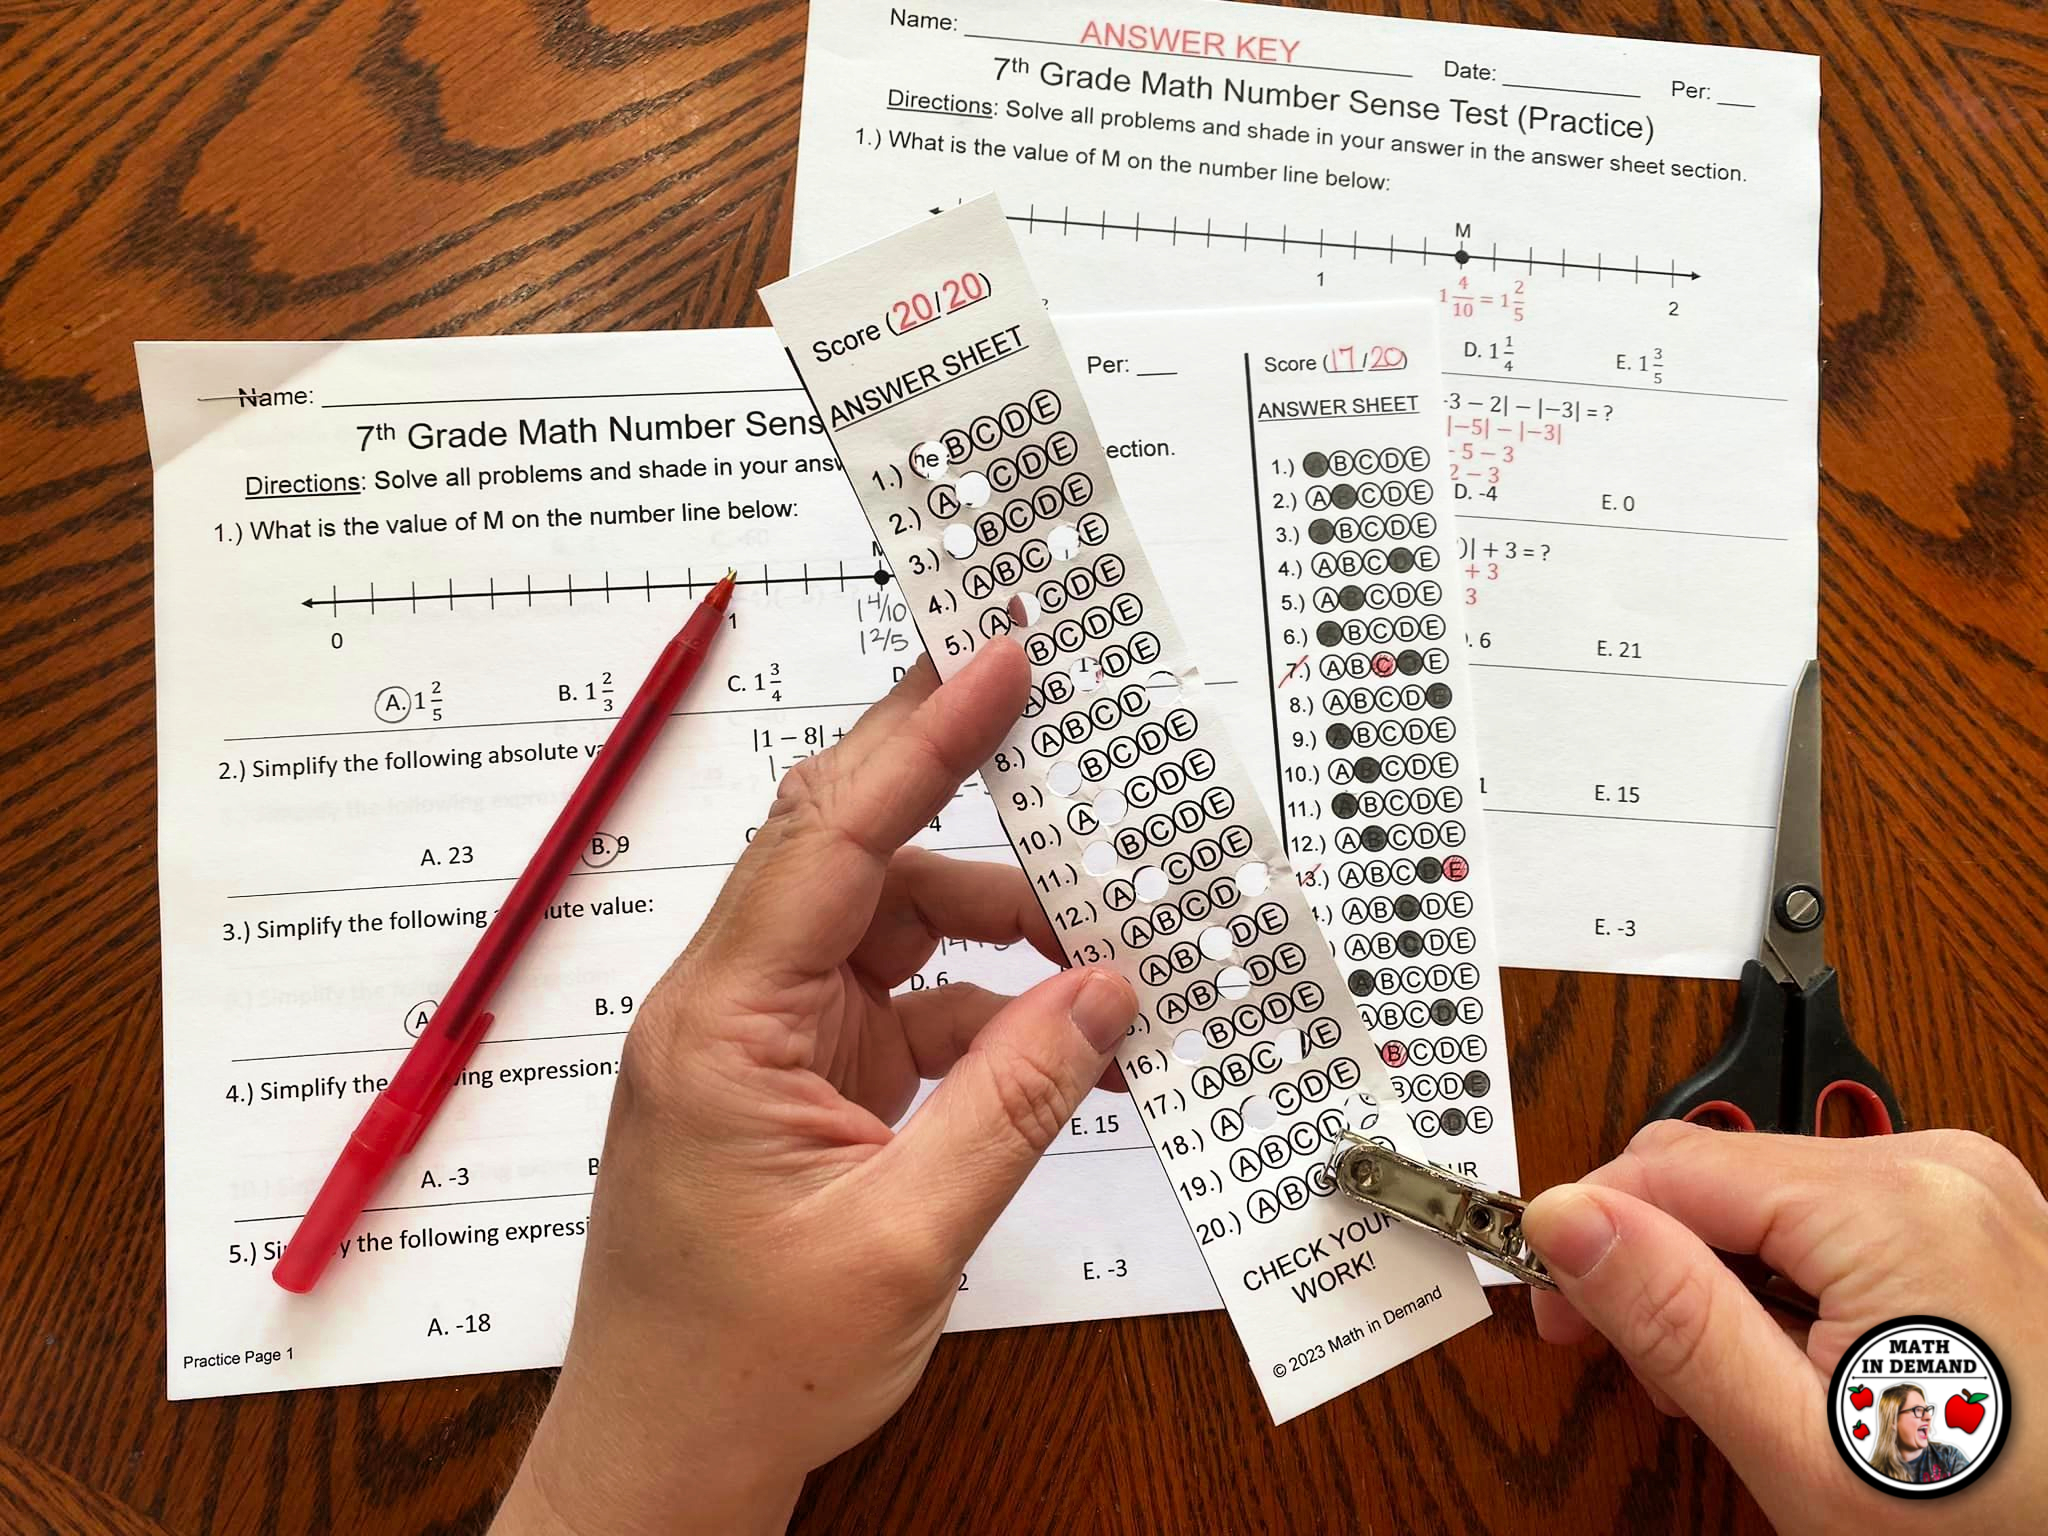 Name: ANSWER KEY Date: Per:
7th Grade Math Number Sense Test (Practice)
Directions: Solve all problems and shade in your answer in the answer sheet section.
1.) What is the value of M on the number line below:
M
1
2
1 4/10 = 1 2/5
D. 1 1/4 E. 1 3/5
-3 − 2| − |−3| = ?
|−5| − |−3|
5 − 3
2 − 3
D. -4 E. 0
)| + 3 = ?
+ 3
3
6 E. 21
E. 15
E. -3
Name: Per:
7th Grade Math Number Sens
Directions: Solve all problems and shade in your answ ection.
1.) What is the value of M on the number line below:
0 1
1 4/10
1 2/5
A. 1 2/5 B. 1 2/3 C. 1 3/4 D
2.) Simplify the following absolute va |1 − 8| +
A. 23 B. 9 C -4
3.) Simplify the following absolute value:
A B. 9 D. 6
4.) Simplify the following expression:
A. -3 B E. 15
5.) Simplify the following expressi
A. -18 2 E. -3
Practice Page 1
Score (17/20)
ANSWER SHEET
1.) A B C D E
2.) A B C D E
3.) A B C D E
4.) A B C D E
5.) A B C D E
6.) A B C D E
7.) A B C D E
8.) A B C D E
9.) A B C D E
10.) A B C D E
11.) A B C D E
12.) A B C D E
13.) A B C D E
.) A B C D E
) A B C D E
A B C D E
A B C D E
B C D E
B C D E
C D E
UR
Score (20/20)
ANSWER SHEET
1.) he B C D E
2.) A C D E
3.) B C D E
4.) A B C E
5.) A C D E
B C D E
A B 1 D E
8.) A B C D
9.) B C D E
10.) A C D E
11.) B C D E
12.) A C D E
13.) A B C D
A B D E
5.) A B D E
16.) B C D E
17.) A B C E
18.) A C D E
19.) A B C D
20.) A B C
CHECK YOUR
WORK!
© 2023 Math in Demand
MATH
IN DEMAND